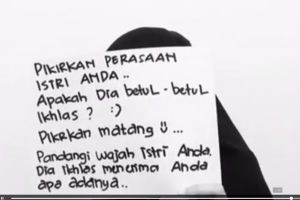 PIKIRKAN PERASAAN
ISTRI ANDA..
Apakah Dia betuL-betuL
Ikhlas ? :)
Pikrkan matang U...
Pandangi wajah istri Anda.
Dia ikhlas menerima Anda
apa adanya..